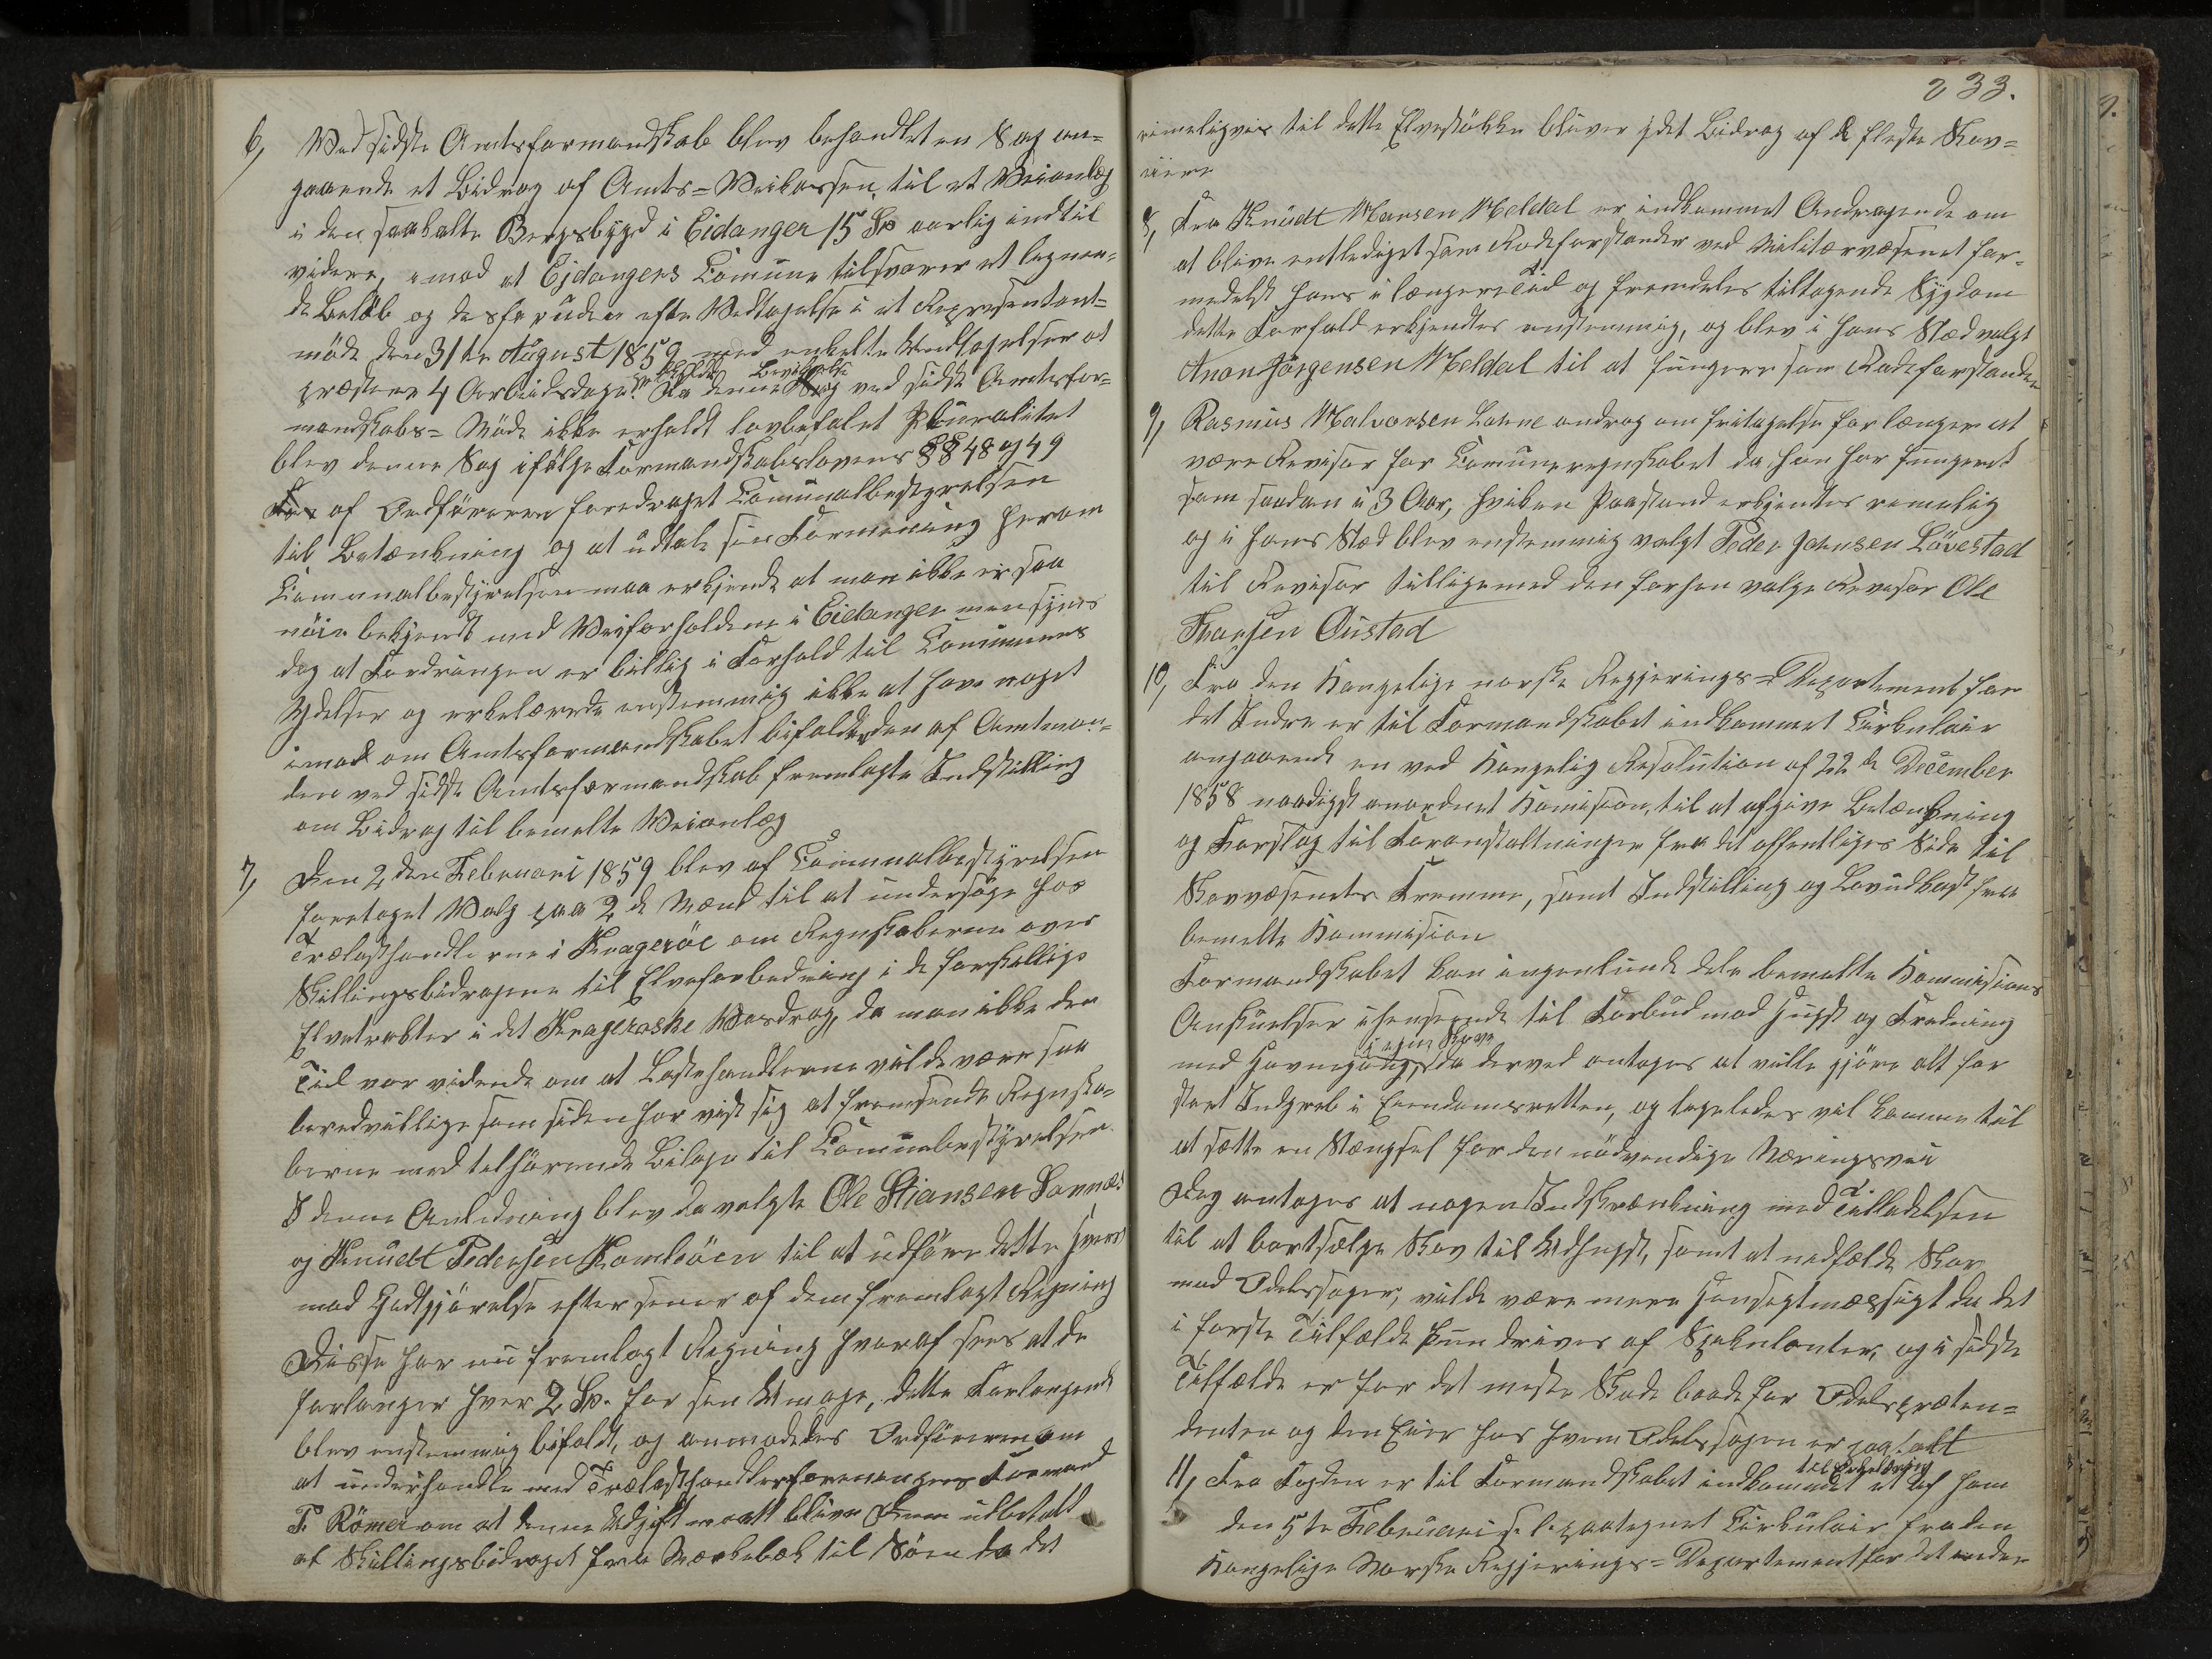 6, Ved sidste Amtsformandskab blev behandlet en Sag an=
gaaende et Bidrag af Amts=Veikassen til et Veianlæg
i den saakalte Bergsbygd i Eidanger 15 Sp aarlig indtil
videre, imod at Ejdangers Comune tilsvarer et lignen=
de Beløb og desforuden efter Vedtagelse i et Repræsentant=
møde den 31te August 1859 med enkelte Undtagelser at
præstere 4 Arbeidsdage. Da denne Sag ved sidste Amtsfor=
mandskabs=Møde ikke erholdt lovbefalet Pluralitet
blev denne Sag ifølge Formandskabslovens §§ 48 og 49
af Ordføreren foredraget Comunalbestyrelsen
til Betænkning og at udtale sin Formening herom
Comunalbestyrelsen maa erkjende at man ikke er saa
nøie bekjendt med Veiforholdene i Eidanger men synes
dog at Fordringen er billig i Forhold til Comunens
Ydelser og erkelærede enstemmig ikke at have noget
imod om Amtsformandskabet bifalder den af Amtman=
den ved sidste Amtsformandskab fremlagte Indstilling
om Bidrag til bemelte Veianlæg
7, Den 2den Februari 1859 blev af Comunalbestyrelsen
foretaget Valg paa 2de Mænd til at undersøge hos
Trælasthandlerne i Kragerøe om Regnskaberne over
Skillingsbidragene til Elveforbedring i de forskellige
Elvetrakter i det Kragerøske Vasdrag, da man ikke den
Tid var vidende om at Lastehandlerne vilde være saa
beredvillige som siden har vist sig at fremsende Regnska=
berne med tilhørende Bilage til Comunebestyrelsen.
I denne Anledning blev da valgte Ole Stiansen Sannæs
og Knudt Pedersen Homleøen til at udføre dette Hverv
mod Godtgjørelse efter senere af dem fremlagt Regning
Disse har nu fremlagt Regning hvoraf sees at de
forlanger hver 2 Sp. for sin Umage, dette Forlangende
blev enstemmig bifaldt, og anmodedes Ordføreren om
at underhandle med Trælasthandlerforeningens Formand
P. Römer om at denne Udgift maatt blive Dem udbetalt
af Skillingsbidraget fra Mærkebæk til Søen da det
233.
rimeligvis til dette Elvestøkke bliver ydet Bidrag af de fleste Skov=
eiere
8, Fra Knudt Hansen Meldal er indkommet Andragende om
at blive entlediget som Rodeforstander ved Militærvæsenet for=
medelst hans i længere Tid og fremdeles tiltagende Sygdom
dette Forfald erkjendtes enstemmig, og blev i hans Sted valgt
Anon Jörgensen Meldal til at fungere som Rodeforstander
9, Rasmus Halvorsen Lohne androg om fritagelse for længer at
være Revisor for Comuneregnskabet da han har fungeret
som saadan i 3 Aar, hvilken Paastand erkjendtes remelig
og i hans Sted blev enstemmig valgt Peder Johnsen Lövestad
til Revisor tilligemed den forhen valgte Revisor Ole
Thorsen Oustad
10, Fra den Kongelige norske Regjerings=Departement for
det Indre er til Formandskabet indkommet Cirkulair
angaaende en ved Kongelig Resolution af 22de December
1858 naadigst anordnet Komision, til at afgive Betænkning
og Forslag til Foranstaltninger fra det offentliges Side til
Skovvæsenets Fremme, samt Indstilling og Lovudkast fra
bemelte Kommision
Formandskabet kan ingenlunde dele bemelte Kommisions
Anskuelser i henseende til Forbud mod Hugst og Fredning
i egen Skove
med Havnegang, da derved antages at ville gjøre alt for
stort Indgreb i Eiendomsretten, og ligeledes vil komme til
at sætte en Stængsel for den nødvendige Næringsvei
Dog antages at nogen Indskrænkning med Tilladelsen
til at bortsælge Skov til Udhugst, samt at nedfælde Skov
mod Odelssager, vilde være mere Hensigtmæssigt da det
i første Tilfælde kun drives af Spekulanter, og i sidste
Tilfælde er for det meste Skade baade for Odelspræten=
denten og den Eier hos hvem Odelssagen er paatalt
til Erkelæring
11, Fra Fogden er til Formandskabet indkommet et af ham
den 5te Februari s. l. paategnet Cirkulair fra den
Kongelige Norske Regjerings=Departement for det indre